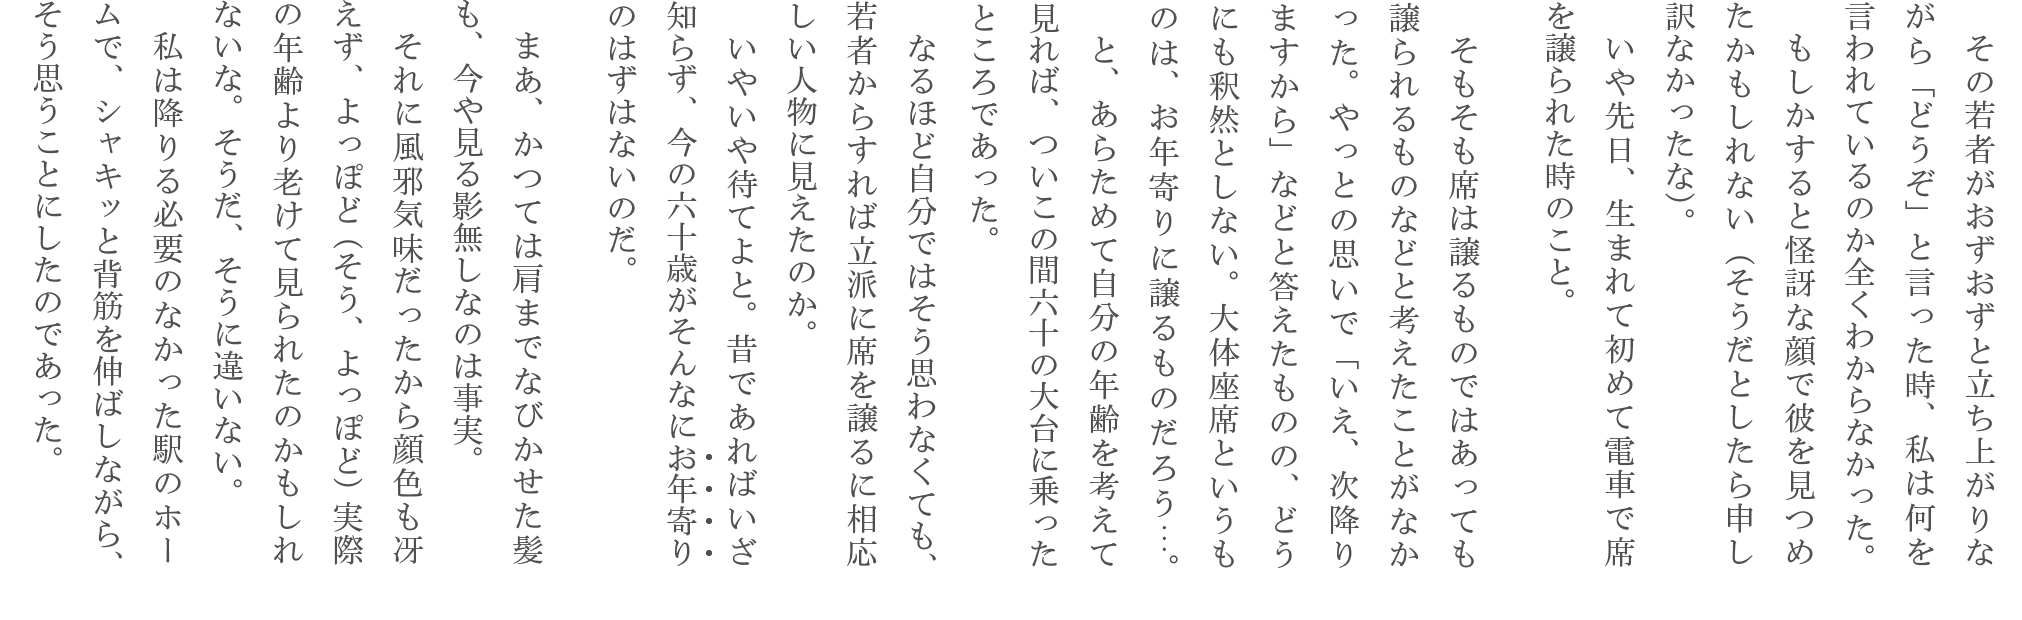 その若者がおずおずと立ち上がりな
がら「どうぞ」と言った時、私は何を
言われているのか全くわからなかった。
もしかすると怪訝な顔で彼を見つめ
たかもしれない（そうだとしたら申し
訳なかったな）。
いや先日、生まれて初めて電車で席
を譲られた時のこと。
そもそも席は譲るものではあっても
譲られるものなどと考えたことがなか
った。やっとの思いで「いえ、次降り
ますから」などと答えたものの、どう
にも釈然としない。大体座席というも
のは、お年寄りに譲るものだろう…。
と、あらためて自分の年齢を考えて
見れば、ついこの間六十の大台に乗った
ところであった。
なるほど自分ではそう思わなくても、
若者からすれば立派に席を譲るに相応
しい人物に見えたのか。
いやいや待てよと。昔であればいざ
知らず、今の六十歳がそんなにお年寄り
のはずはないのだ。
まあ、かつては肩までなびかせた髪
も、今や見る影無しなのは事実。
それに風邪気味だったから顔色も冴
えず、よっぽど（そう、よっぽど）実際
の年齢より老けて見られたのかもしれ
ないな。そうだ、そうに違いない。
私は降りる必要のなかった駅のホー
ムで、シャキッと背筋を伸ばしながら、
そう思うことにしたのであった。